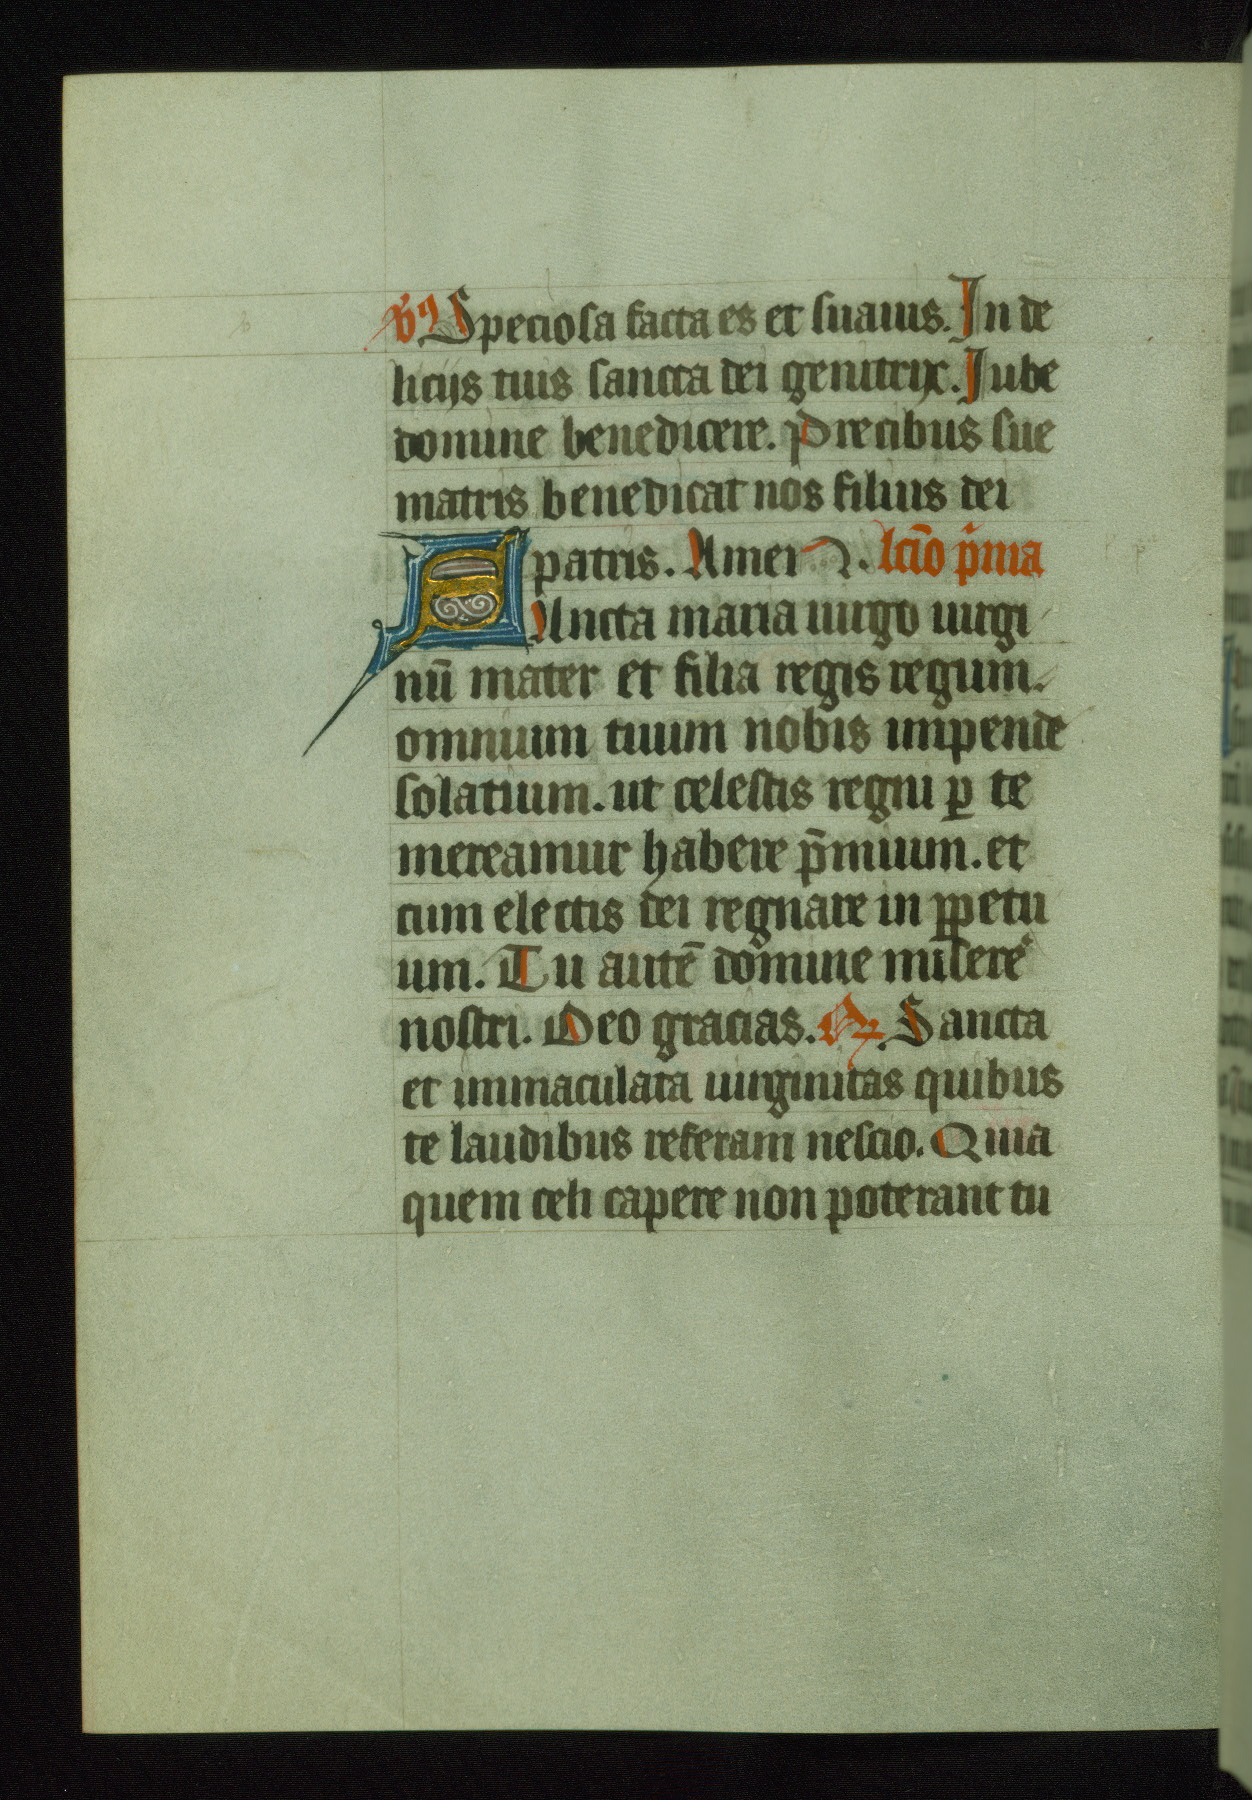 v̄s Speciosa facta es et suauis. In de
licijs tuis sancta dei genitrix. Jube
domine benedicere. Precibus sue
matris benedicat nos filius dei
patris. Amen. lc̄io p̄ma
SAncta maria uirgo uirgi
nū mater et filia regis regum.
omnium tuum nobis impende
solatium. ut celestis regni ꝑ te
mereamur habere p̄mium. et
cum electis dei regnare in ꝑpetu
um. Tu autē domine miserē
nostri. Deo gracias. ℟. Sancta
et immaculata uirginitas quibus
te laudibus referam nescio. Quia
quem celi capere non poterant tu